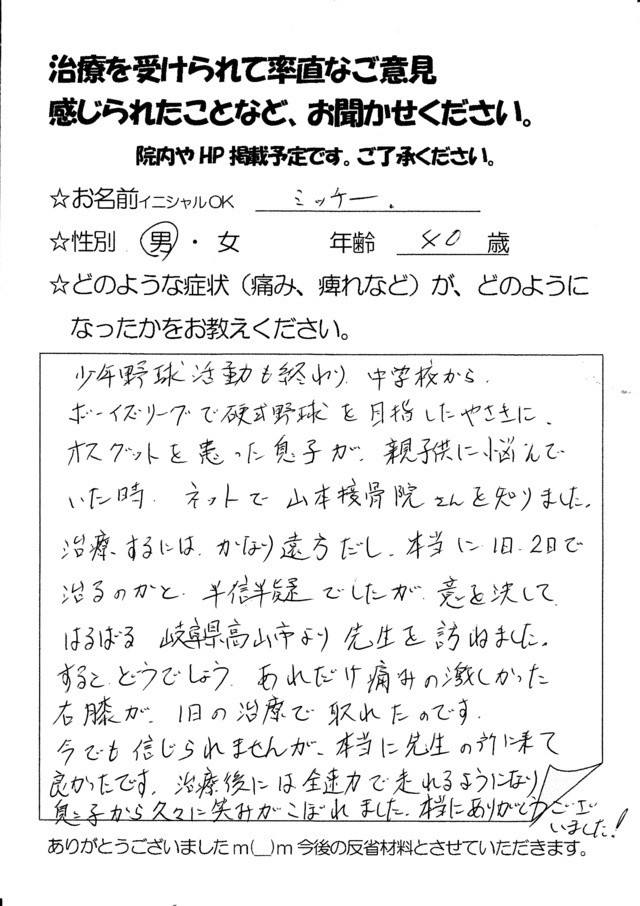 治療を受けられて率直なご意見
感じられたことなど、お聞かせください。
院内やHP掲載予定です。ご了承ください。
☆お名前イニシャルOK ミッキー.
☆性別 男・女 年齢 40 歳
☆どのような症状（痛み、痺れなど）が、どのように
なったかをお教えください。
少年野球活動も終わり、中学校から、
ボーイズリーグで硬式野球を目指したやさきに、
オスグットを患った息子が、親子供に悩んで
いた時、ネットで山本接骨院さんを知りました。
治療するには、かなり遠方だし、本当に1日、2日で
治るのかと、半信半疑でしたが、意を決して
はるばる 岐阜県高山市より 先生を訪ねました。
すると、どうでしょう、あれだけ痛みの激しかった
右膝が、1日の治療で取れたのです。
今でも信じられませんが、本当に先生の所に来て
良かったです。治療後には全速力で走れるようになり
息子から久々に笑みがこぼれました。本当にありがとうござい
いました!
ありがとうございましたm(__)m今後の反省材料とさせていただきます。